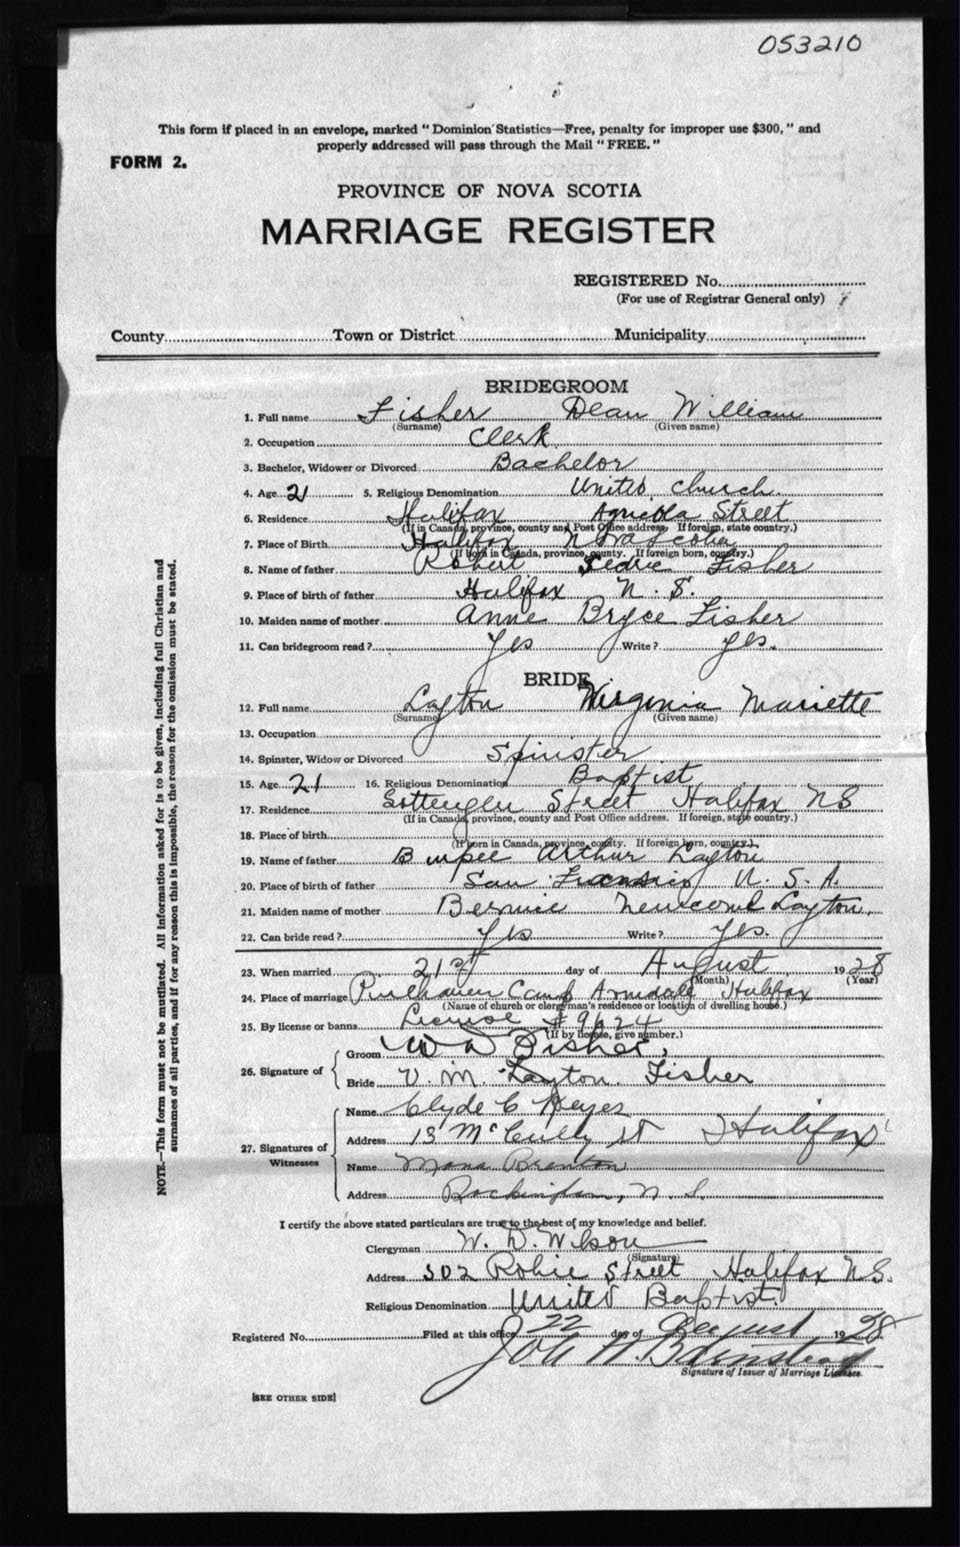 053210
This form if placed in an envelope, marked "Dominion Statistics—Free, penalty for improper use $300," and
properly addressed will pass through the Mail "FREE."
FORM 2.
PROVINCE OF NOVA SCOTIA
MARRIAGE REGISTER
REGISTERED No.
(For use of Registrar General only)
County Town or District Municipality
BRIDEGROOM
1. Full name Fisher Dean William
(Surname) (Given name)
2. Occupation Clerk
3. Bachelor, Widower or Divorced Bachelor
4. Age 21 5. Religious Denomination United church.
6. Residence Halifax Agricola Street
(If in Canada, province, county and Post Office address. If foreign, state country.)
7. Place of Birth Halifax Nova Scotia
(If born in Canada, province, county. If foreign born, country.)
8. Name of father Robert Sedric Fisher
9. Place of birth of father Halifax N. S.
10. Maiden name of mother Anne Bryce Fisher
11. Can bridegroom read? Yes Write? Yes.
BRIDE
12. Full name Layton Virginia Mariette
(Surname) (Given name)
13. Occupation
14. Spinster, Widow or Divorced Spinster
15. Age 21 16. Religious Denomination Baptist
17. Residence Street Halifax NS
(If in Canada, province, county and Post Office address. If foreign, state country.)
18. Place of birth
(If born in Canada, province, county. If foreign born, country.)
19. Name of father Burpee Arthur Layton
20. Place of birth of father San U. S. A.
21. Maiden name of mother Bernice Newcomb Layton.
22. Can bride read? Yes Write? Yes.
23. When married 21st day of August 1928
(Month) (Year)
24. Place of marriage Camp Armdale Halifax
(Name of church or clergyman's residence or location of dwelling house.)
25. By license or banns License # 9624
(If by license, give number.)
26. Signature of Groom W D Fisher,
Bride V. M. Layton. Fisher
27. Signatures of Witnesses Name Clyde C Keyes
Address 13 McCully St Halifax
Name Mona Brenton
Address Rockingham, N. S.
I certify the above stated particulars are true to the best of my knowledge and belief.
Clergyman W. D. Wilson
(Signature)
Address 302 Robie Street Halifax N.S.
Religious Denomination United Baptist.
Registered No. Filed at this office 22 day of August 1928
Signature of Issuer of Marriage Licenses.
[SEE OTHER SIDE]
NOTE.—This form must not be mutilated. All information asked for is to be given, including full Christian and
surnames of all parties, and if for any reason this is impossible, the reason for the omission must be stated.